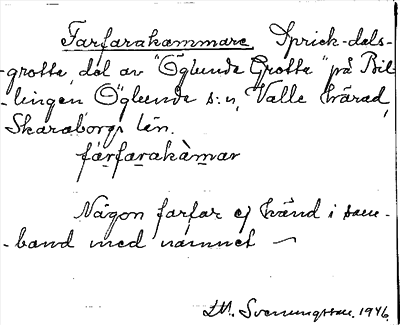 Farfarakammare Sprick-dals-
-grotta, del av "Öglunda Grotta" på Bil-
-lingen Öglunda s:n, Valle härad,
Skaraborgs län.
fàrfarakàmar
Någon farfar ej känd i sam-
-band med namnet —
Svenungsson. 1946.